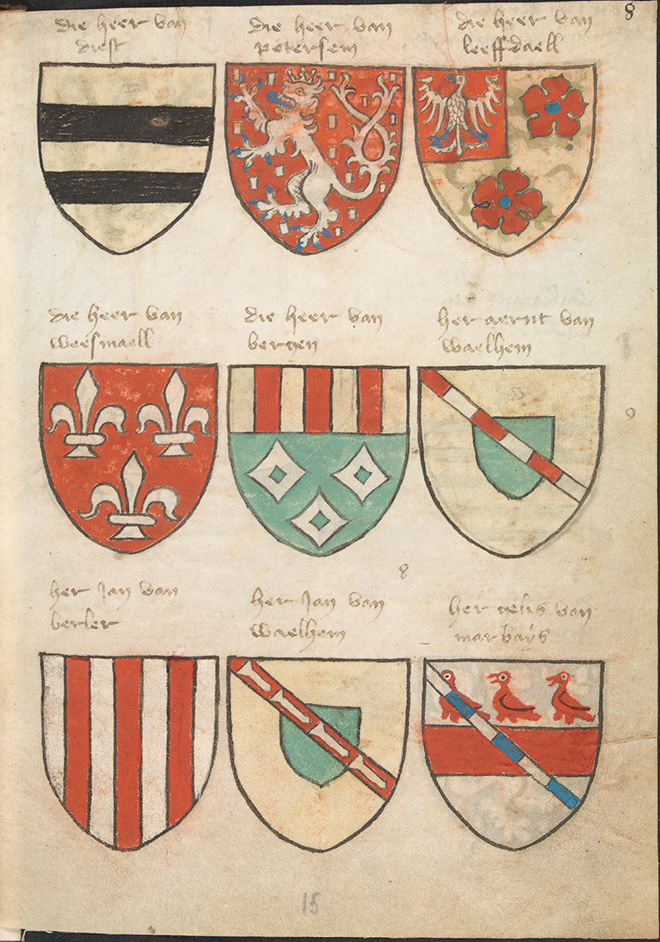 8
die heer van
diest
die heer van
petersem
die heer van
leeffdaell
die heer van
weesmaell
die heer van
bergen
her aernt van
waelhem
9
8
her Jan van
berler
her Jan van
waelhem
her van
marbays
15